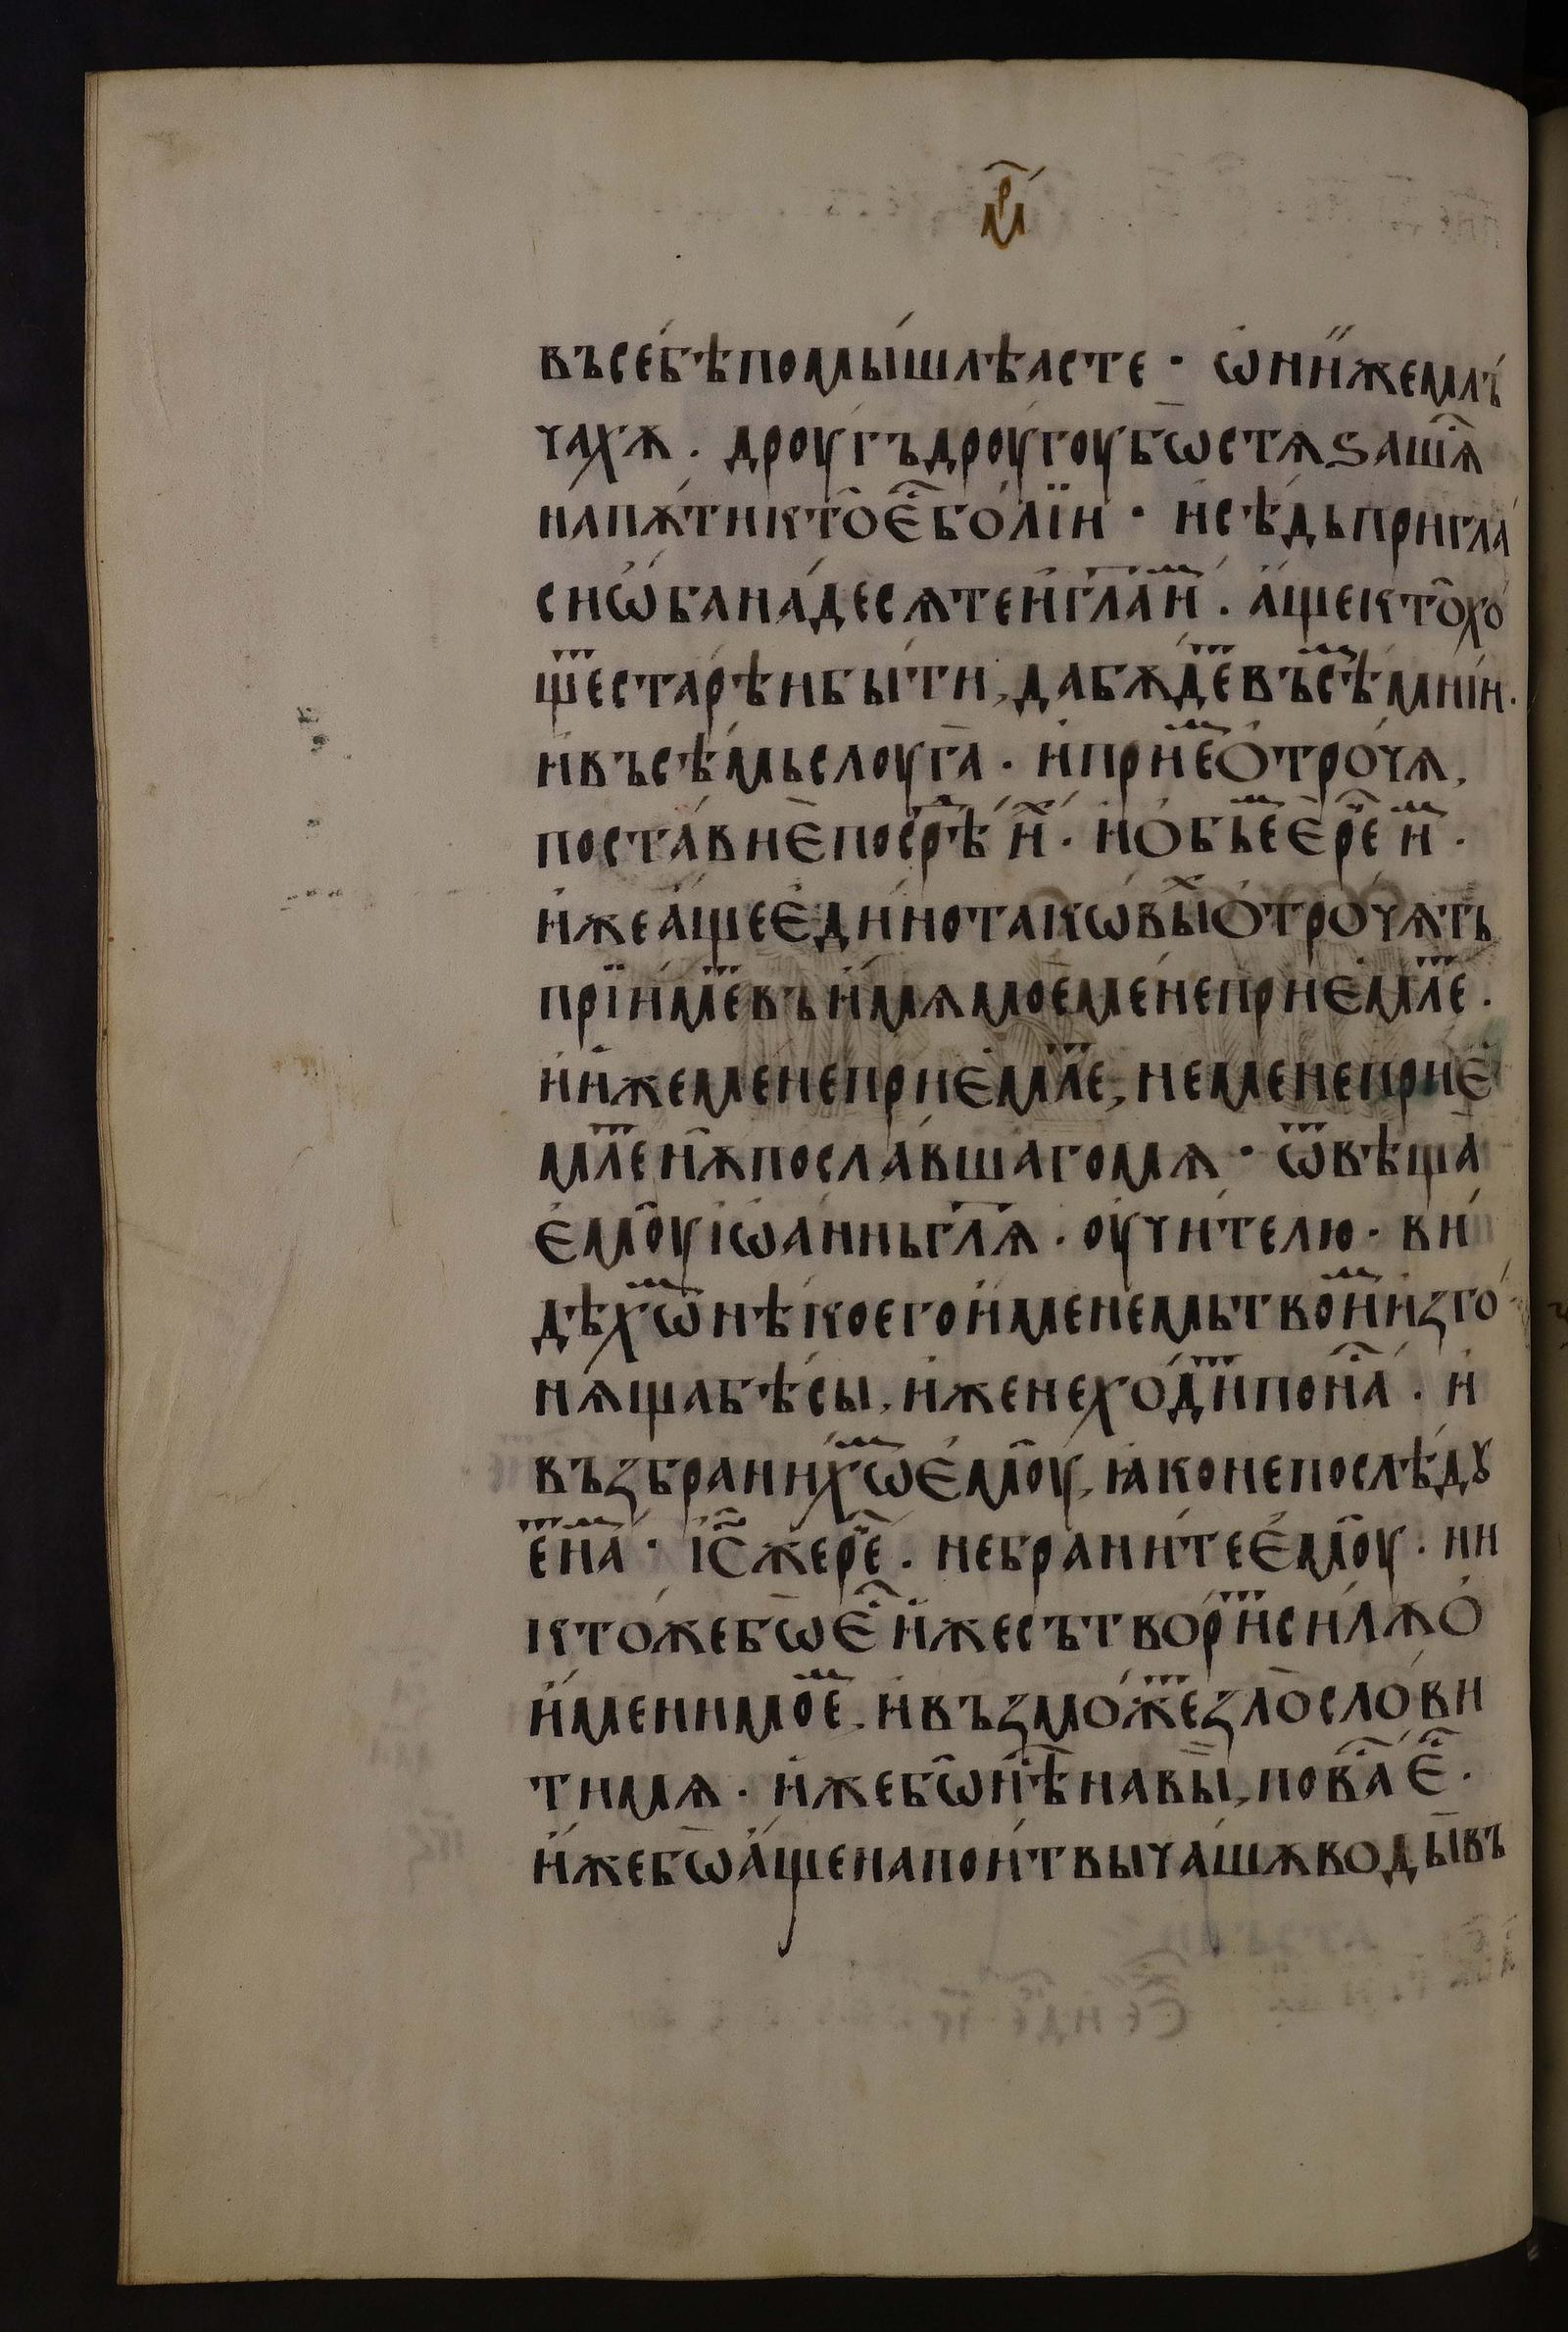 мр҃
въсе́бѣпомы́шлѣасте · ѡ҆ни́жемлъ́
чаахѫ . дроу́гъдроу́гоубѡ̄стѧѕашѧ̑
напѫ́тиктѡ̑є҆҇бо́лїи · и҆сѣ́дьпригла́
сиѡ҆́бана́десѧтеи҆гл҃аи҆ⷨ . а҆́щектѡ̑хо́
щеⷮстарѣ́ибы́ти, дабѫ́деⷮвъсѣⷨ́мні́и .
и҆въсѣ́мьслоуга̀ . и҆прие́ⷨѻ҆троча̀ѧ,
поста́виє҆̀посрⷣѣ́и҆́ⷯ . и҆ѻ҆бье́ⷨє҆ре҇и҆́ⷨ .
и҆жеа҆́щеє҆ди́нотакѡвы́ⷯѻ҆троча́ть
прїи́меⷮвъи҆́мѧмоѐменѐприє҆́млеⷮ .
и҆и҆́жеменѐприє҆́млеⷮ, неменѐприє҆́
млеⷮнѫ̑посла́вшагомѧ · ѿвѣща̀
є҆моу̑і҆ѡа́нньгл҃ѧ . оу҆чи́телю . ви́
дѣхѡⷨнѣ́коегои҆́менемьтвои́ⷨизго́
нѧщабѣ́сы, и҆женехо́диⷮпона҇́ . и҆
възбрани́хѡⷨє҆моу̑, ꙗ҆конепослѣ́дꙋ
еⷮнаⷨ · і҆с҃жереⷱ҇ . небрани́теє҆моу̑ . ни
кто́жебѡ̄є҆҇и҆́жесътво́риⷮси́лѫѻ҆́
и҆́менимое́ⷨ, и҆възмо́жеⷮзлосло́ви
тимѧ . и҆́жебѡ̑нѣ҇навы̀, пова҇́є҆҇ .
и҆́жебѡ̄а҆́щенапои́твы̀ча́шѫводы̀въ